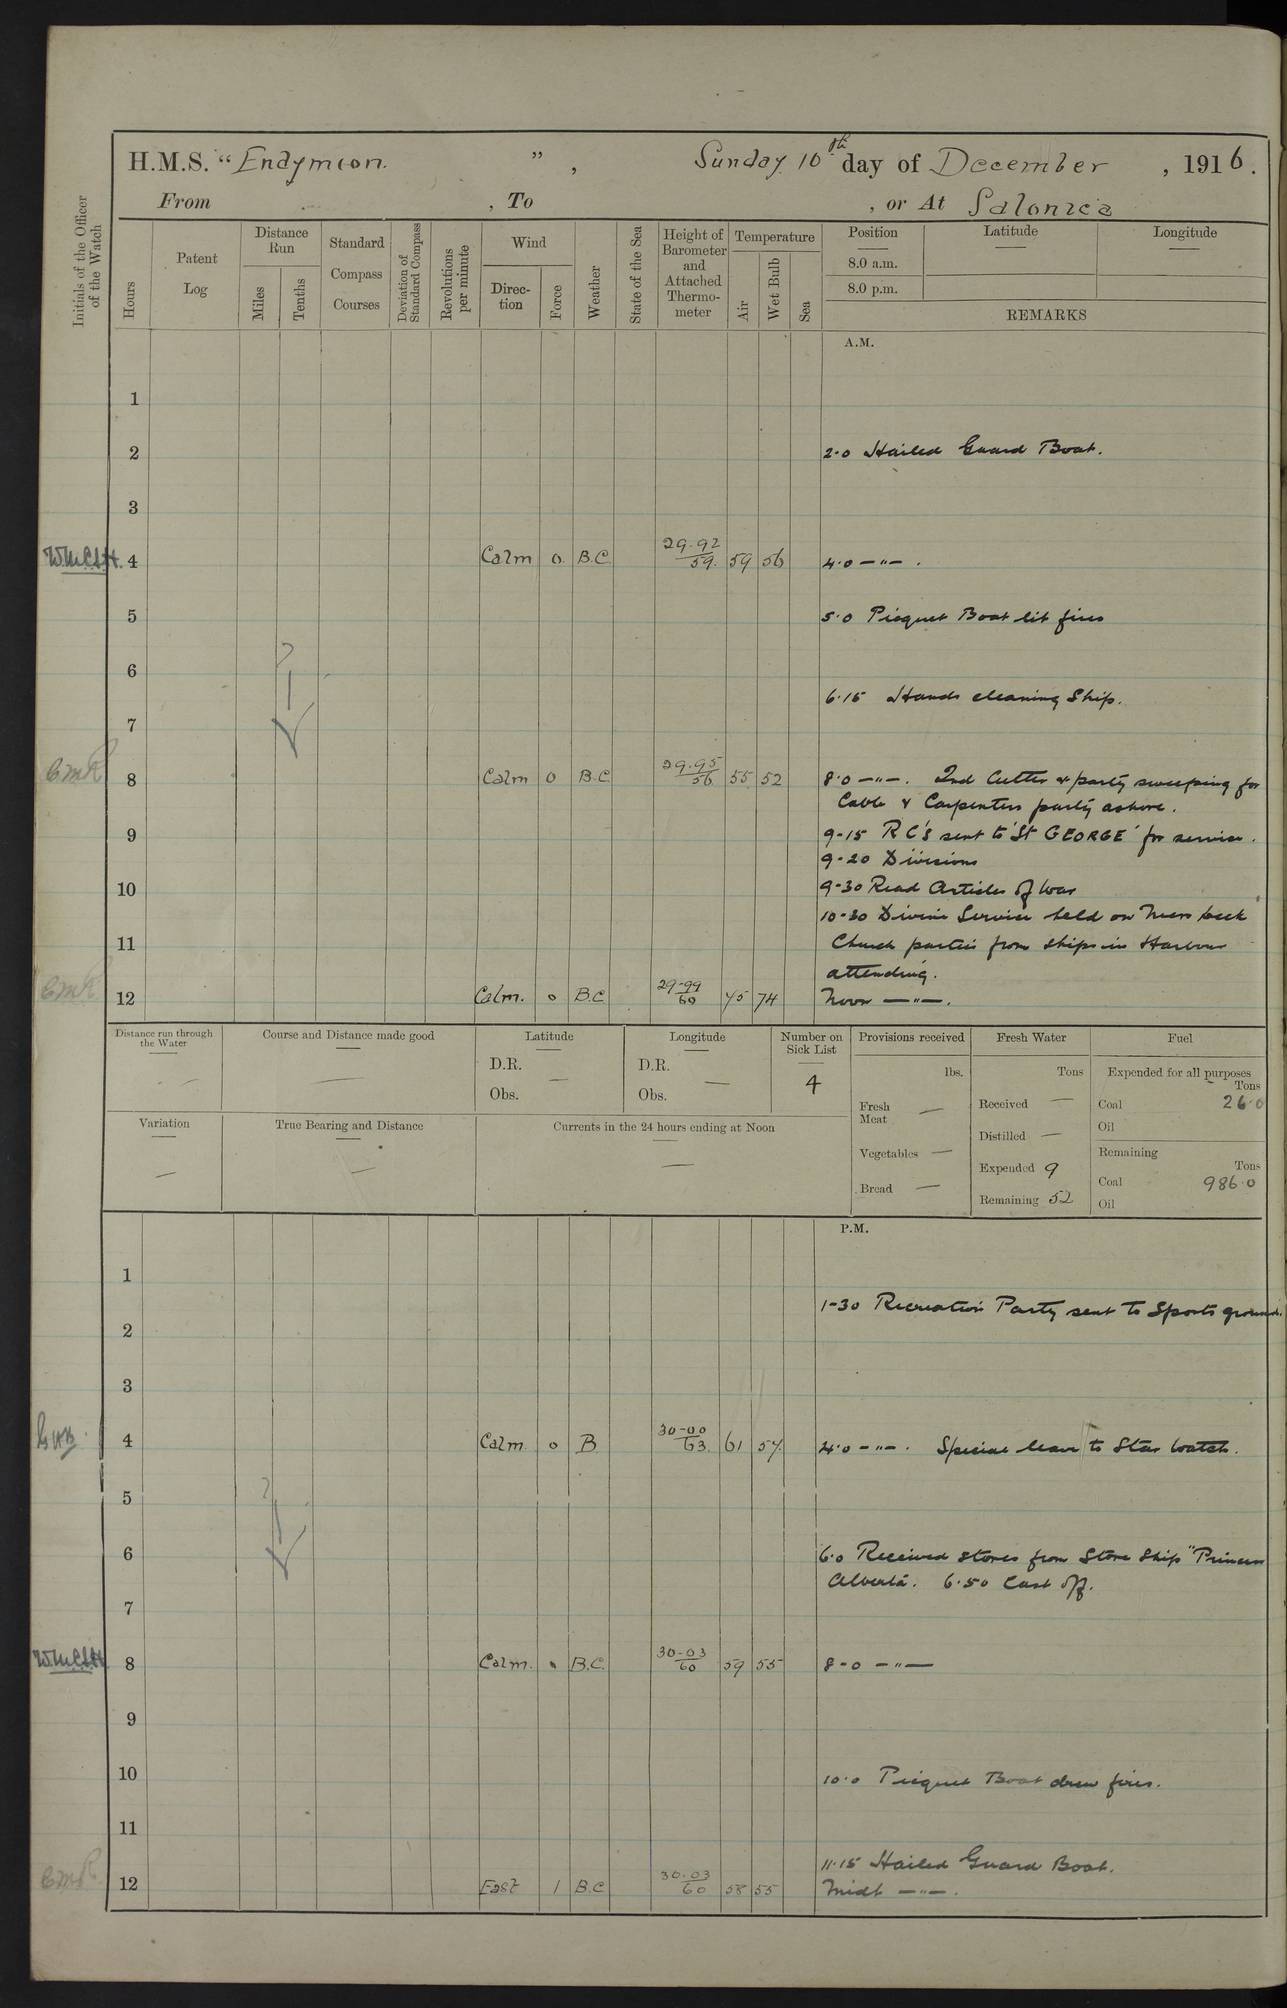 H.M.S. "Endymion. ", Sunday 10th day of December, 1916.
From , To , or At Salonica
Initials of the Officer of the Watch
Hours
Patent Log
Distance Run
Miles
Tenths
Standard Compass Courses
Deviation of Standard Compass
Revolutions per minute
Wind
Direction
Force
Weather
State of the Sea
Height of Barometer and Attached Thermometer
Temperature
Air
Wet Bulb
Sea
Position
8.0 a.m.
8.0 p.m.
Latitude
Longitude
REMARKS
A.M.
1
2 2.0 Hailed Guard Boat.
3
4 Calm 0. B.C. 29.92 59. 59 56 4.0 —"— .
5 5.0 Picquet Boat lit fires
6
6.15 Hands cleaning Ship.
7
C.M.R. 8 Calm 0 B.C. 29.95 56 55 52 8.0 —"—. 2nd Cutter & party sweeping for
Cable & Carpenters party ashore.
9 9-15 R C's sent to 'St GEORGE' for service.
9-20 Divisions
10 9-30 Read Articles of War
10-30 Divine Service held on Mess Deck
11 Church parties from ships in Harbour
attending.
C.M.R. 12 Calm. 0 B.C 29-99 60 75 74 Noon —"—.
Distance run through the Water
Course and Distance made good
Latitude
D.R.
Obs.
Longitude
D.R.
Obs.
Number on Sick List
4
Provisions received
lbs.
Fresh Meat —
Vegetables —
Bread —
Fresh Water
Tons
Received —
Distilled —
Expended 9
Remaining 52
Fuel
Expended for all purposes
Tons
Coal 26.0
Oil
Remaining
Tons
Coal 986.0
Oil
Variation
True Bearing and Distance
Currents in the 24 hours ending at Noon
P.M.
1
1-30 Recreation Party sent to Sports ground.
2
3
4 Calm. 0 B 30-00 63. 61 57 4.0 —"— . Special leave to Star Watch.
5
6 6.0 Received stores from Store Ship "Princess
Alberta. 6.50 Cast off.
7
8 Calm. 0 B.C. 30-03 60 59 55 8-0 —"—
9
10 10.0 Picquet Boat drew fires.
11
11.15 Hailed Guard Boat.
C.M.R. 12 East 1 B.C 30.03 60 58 55 Midt —"—.